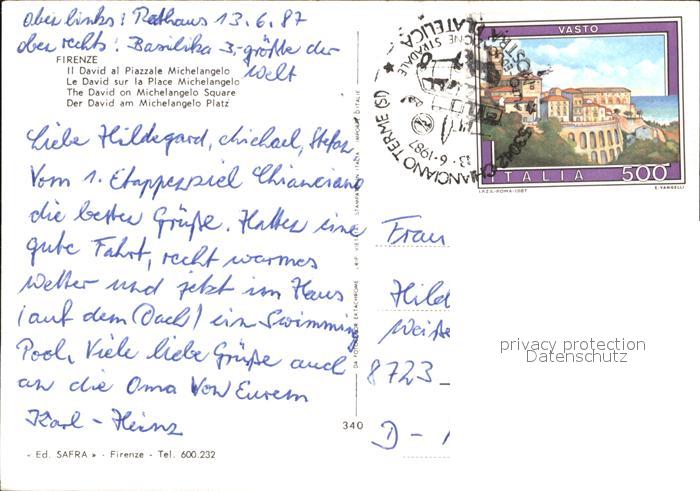 oben links: Rathaus 13.6.87
oben rechts: Basilika 3.-größte der
Welt
FIRENZE
Il David al Piazzale Michelangelo
Le David sur la Place Michelangelo
The David on Michelangelo Square
Der David am Michelangelo Platz
Liebe Hildegard, Michael, Stefan
Vom 1. Etappenziel Chianciano
die besten Grüße. Hatten eine
gute Fahrt, recht warmes
Wetter und jetzt im Haus
(auf dem Dach) ein Swimming
Pool. Viele liebe Grüße auch
an die Oma von Eurem
Karl-Heinz
340
« Ed. SAFRA » - Firenze - Tel. 600.232
VASTO
ITALIA 500
I.P.Z.S.-ROMA-1987
E. VANGELLI
53042 CHIANCIANO TERME (SI)
13-6-1987
FILATELICA
STRADALE
Frau
Hild
Weiße
8723
D -
privacy protection
Datenschutz